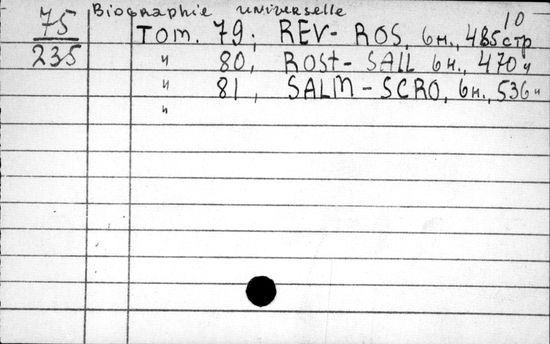 Biographie universelle
10
75
235
Tom. 79; REV- ROS, 6н., 485 стр
" 80, ROST- SALL 6 н., 470 "
" 81, SALM - SCRO, 6н., 536 "
"